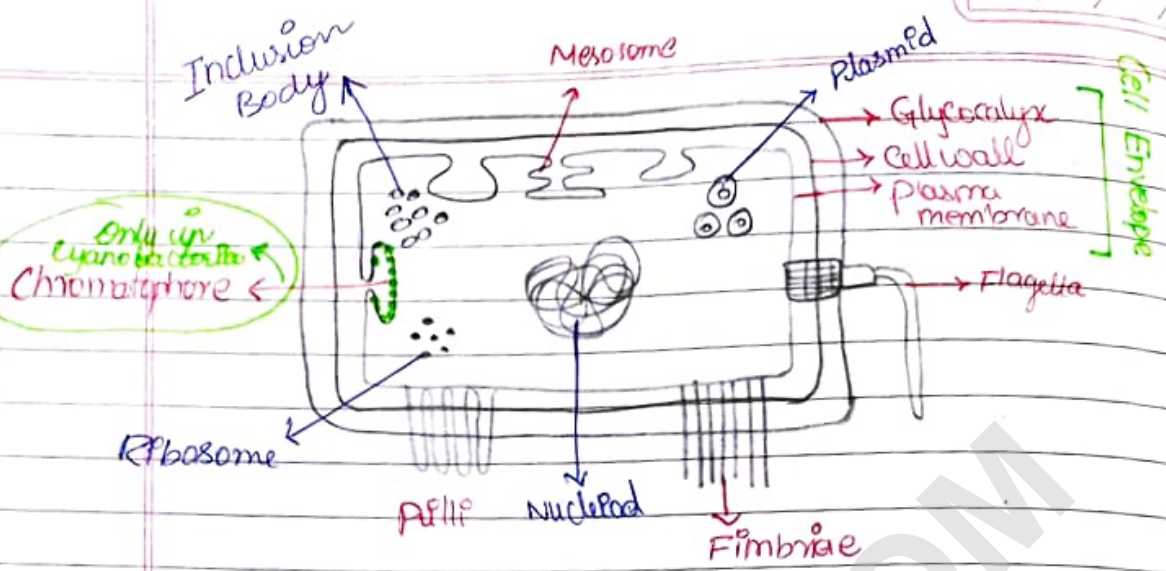 Inclusion
Body
Mesosome
Plasmid
Cell Envelope
Glycocalyx
Cell wall
Plasma
membrane
Only in
Cyanobacteria
Chromatophore
Flagella
Ribosome
Pilli
Nucleoid
Fimbriae
OM